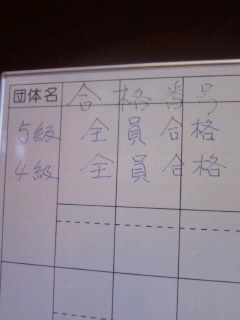 団体名 合格番号
5級 全員合格
4級 全員合格